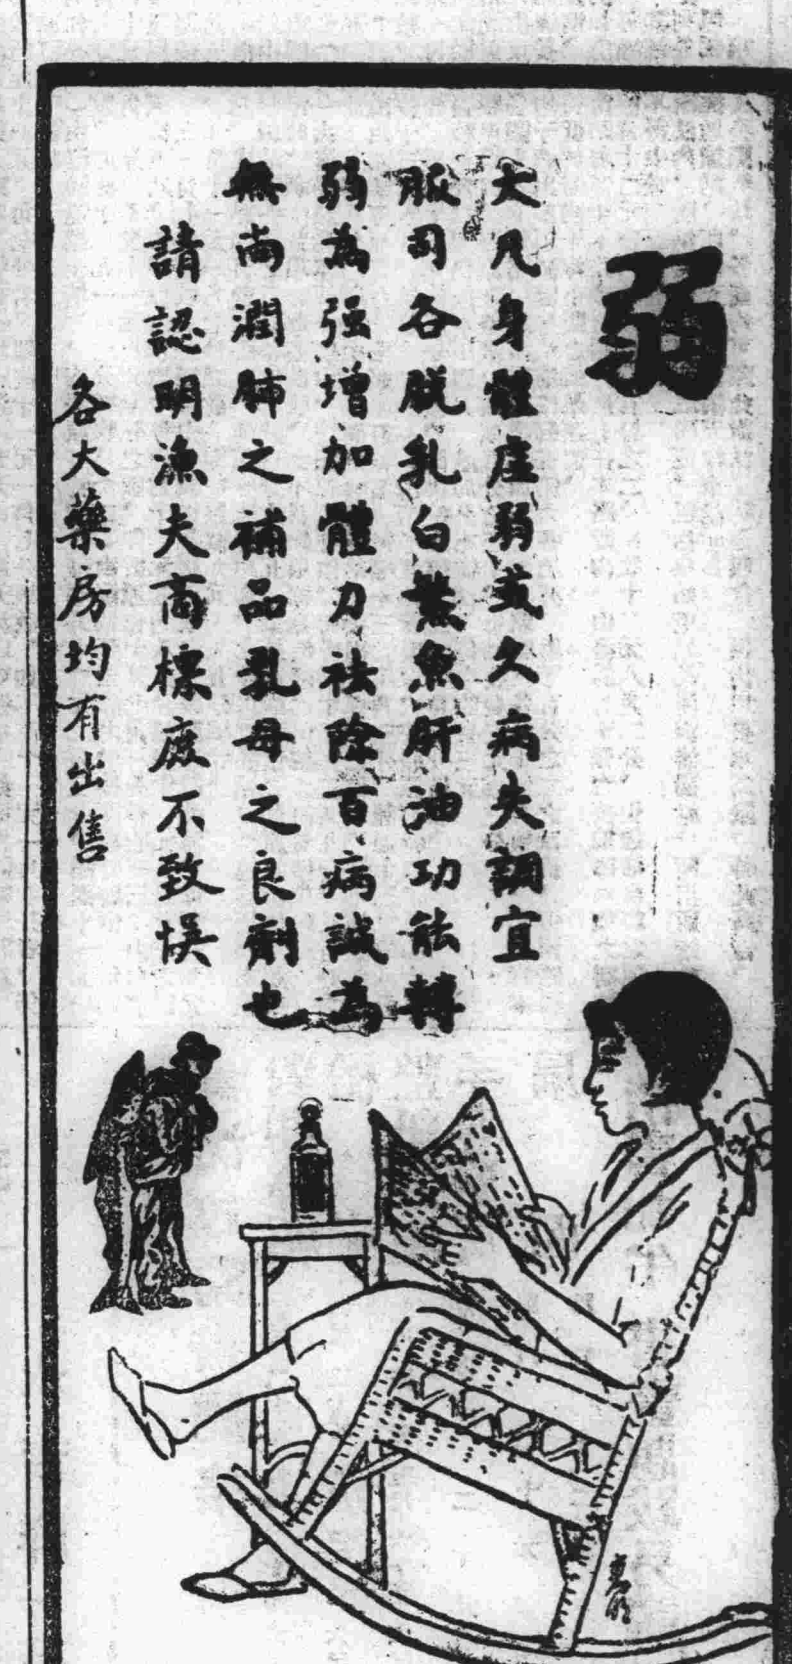 弱
大凡身體虛弱或久病失調宜
服司各脫乳白鰵魚肝油功能轉
弱為强增加體力祛除百病誠為
無尚潤肺之補品乳母之良劑也
請認明漁夫商標庶不致悞
各大藥房均有出售